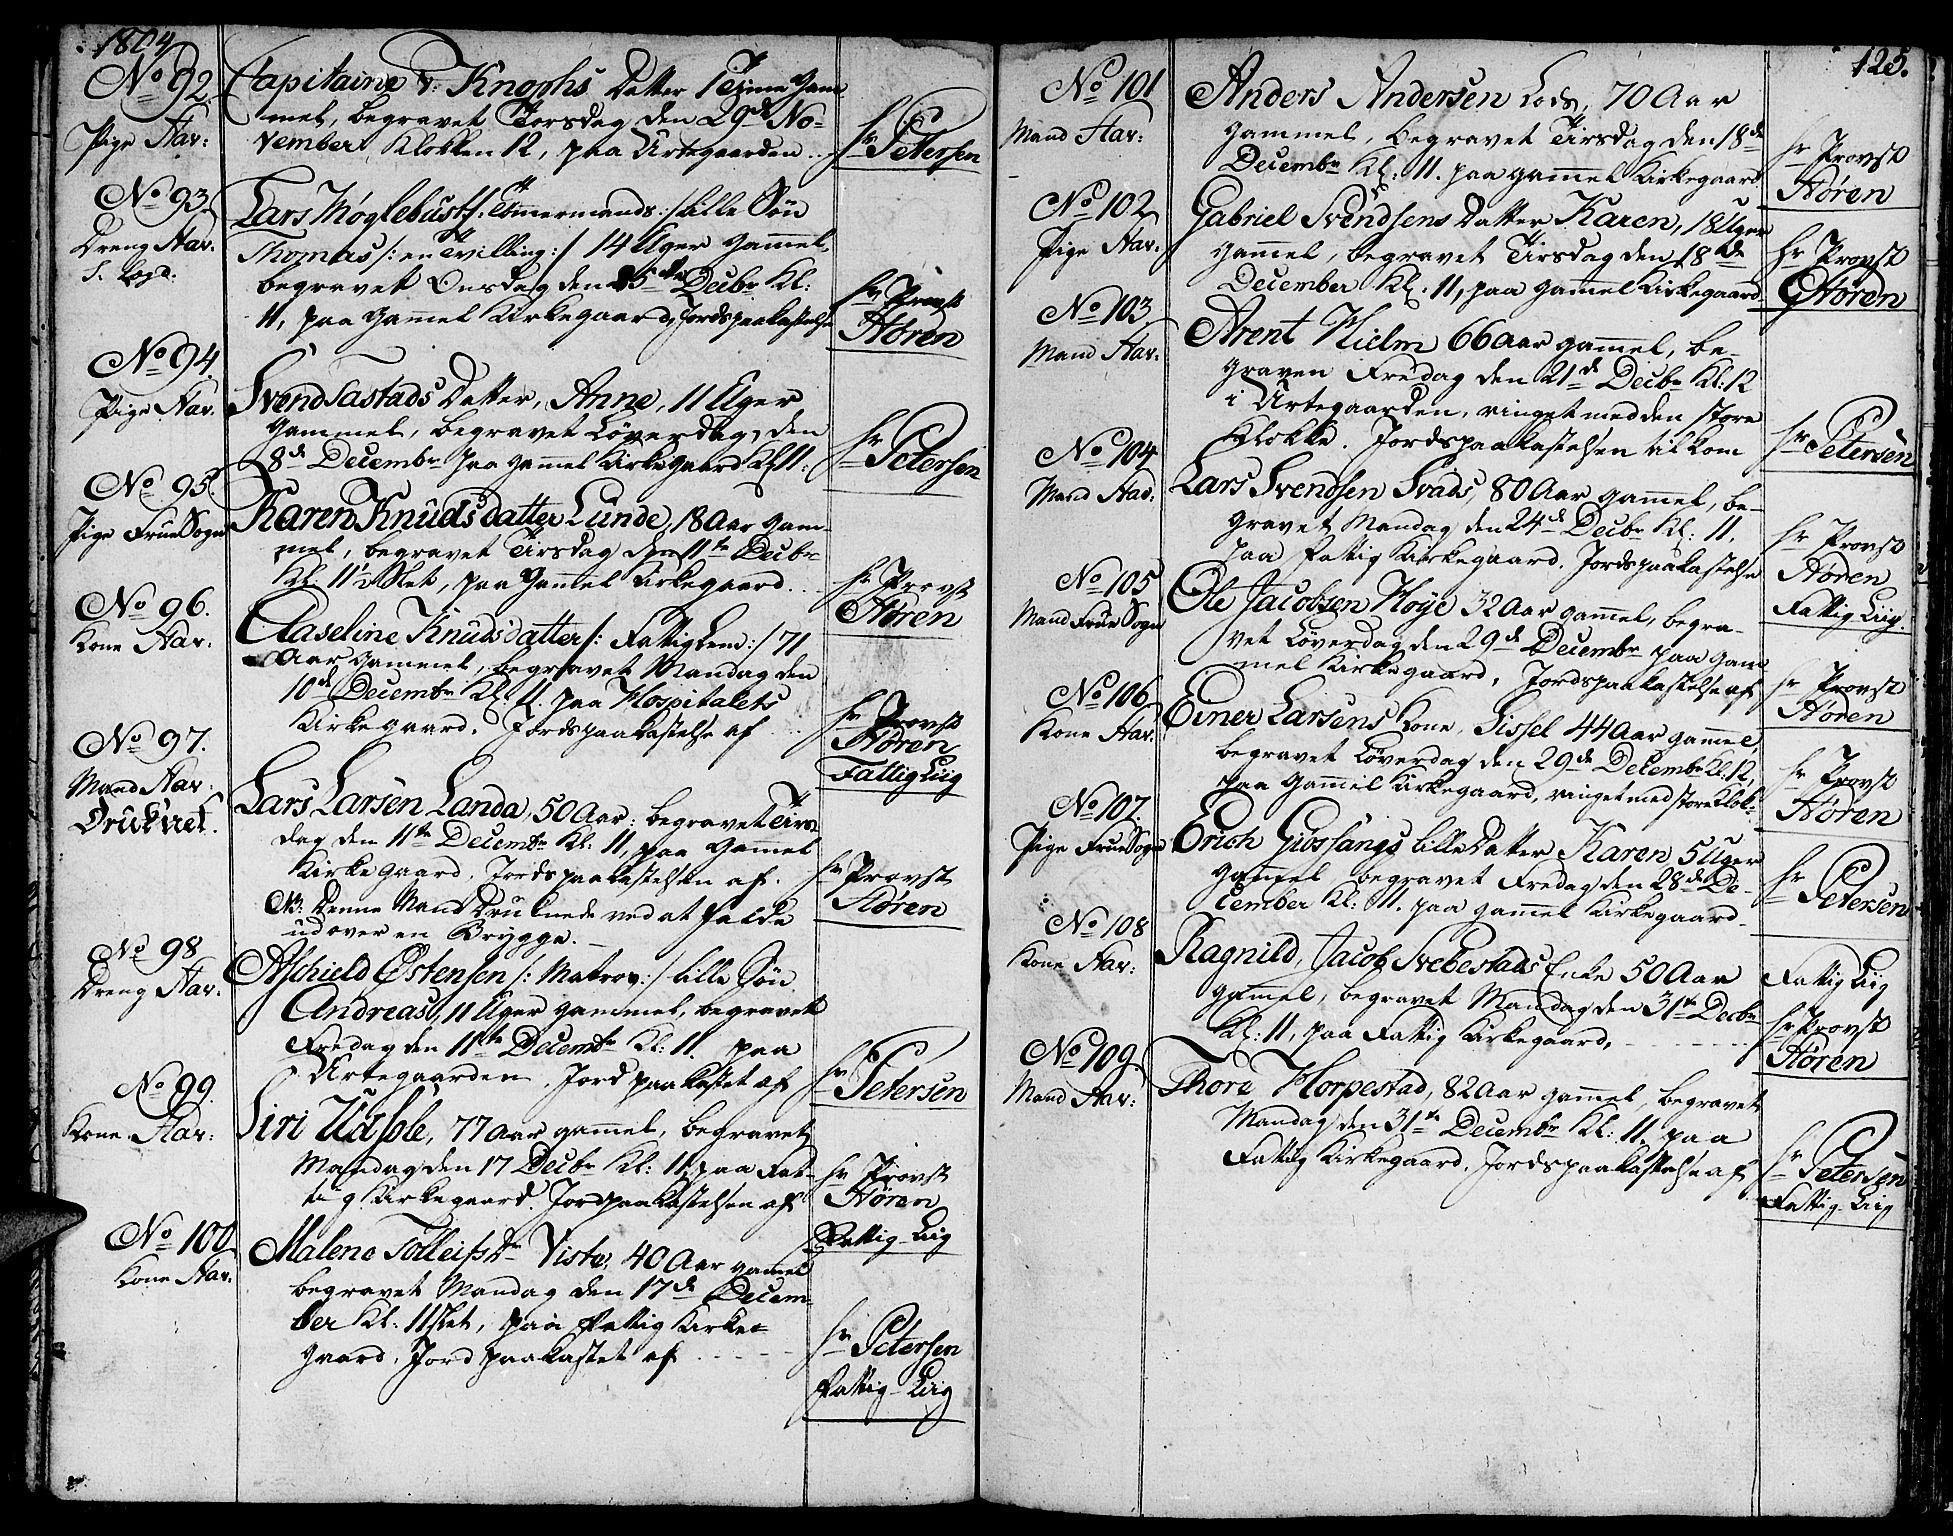 1804
No 92.
Pige Hav:
Capitaine v: Knophs Datter 1 Time Gam
mel, begravet Torsdag den 29de No-
vember Klokken 12, paa Urtegaarden
hr Petersen
No 93
Dreng Hav.
Lars Møglebust /: Tömermands :/ lille Søn
Thomas /: en Tvilling :/ 14 Uger gammel,
begravet Onsdag den 5te Decbr Kl:
11, paa Gammel Kirkegaard, Jordspaakastelse
hr Provst
Hören
No 94.
Pige Hav.
Svend Tastads Datter, Anne, 11 Uger
gammel, begravet Löverdag, den
8de Decembr paa gammel Kirkegaard Kl 11:
hr Petersen
No 95.
Pige Frue Sogn
Karen Knudsdatter Lunde, 18 Aar gam-
mel, begravet Tirsdag den 11te Decbr
Kl: 11½ Slet, paa Gammel Kirkegaard
hr Provst
Hören
No 96.
Kone Hav.
Aaseline Knudsdatter /: Fattig Lem :/ 71
Aar gammel, begravet Mandag den
10de Decembr Kl. 11. paa Hospitalets
Kirkegaard. Jordspaakastelse af
hr Provst
Hören
Fattig Liig
No 97.
Mand Hav:
Druknet.
Lars Larsen Landa, 50 Aar: begravet Tirs
dag den 11te Decembr Kl: 11, paa Gammel
Kirkegaard. Jordspaakastelsen af.
NB: Denne Mand Druknede ved at falde
ud over en Brygge.
hr Provst
Hören
No 98
Dreng Hav:
Aschield Östensen /: Matros :/ lille Søn
Andreas, 11 Uger gammel, begravet
Fredag den 11te Decembr Kl: 11. paa
Urtegaarden. Jord paakastet af
hr Petersen
No 99.
Kone. Hav:
Siri Udsole, 77 Aar gammel, begravet
Mandag den 17 Decbr Kl: 11, paa Fat-
tig Kirkegaard. Jordpaakastelsen af
hr Provst
Hören
Fattig Liig
No 100
Kone Hav.
Malene Tolleifsdr Viste, 40 Aar gamel
begravet Mandag den 17de Decem-
ber Kl: 11 slet, paa Fattig Kirke-
gaard. Jord paakastet af
hr Petersen
Fattig-Liig
125.
No 101
Mand Hav:
Anders Andersen Lods, 70 Aar
gammel, begravet Tirsdag den 18de
Decembr Kl: 11. paa gammel Kirkegaard
hr Provst
Hören
No 102
Pige Hav:
Gabriel Svendsens Datter Karen, 18 Uger
gammel, begravet Tirsdag den 18de
December Kl: 11, paa gammel Kirkegaard
hr Provst
Hören
No 103
Mand Hav:
Arent Hielm 66 Aar gammel, be-
graven Fredag den 21de Decbr Kl: 12
i Urtegaarden, ringet med den store
Klokke. Jordspaakastelsen tilkom
hr Petersen
No 104
Mand Hav:
Lars Svendsen Svads, 80 Aar gammel, be-
gravet Mandag den 24de Decbr Kl: 11,
paa Fattig Kirkegaard. Jordspaakastelse
hr Provst
Hören
Fattig Liig.
No 105
Mand Frue Sogn
Ole Jacobsen Höye 32 Aar gammel, begra-
vet Löverdag den 29de Decembr paa gam
mel Kirkegaard, Jordspaakastelse af
hr Provst
Hören
No 106
Kone Hav.
Einer Larsens Kone, Sissel 44 Aar gammel,
begravet Löverdag den 29de Decembr Kl: 12,
paa Gammel Kirkegaard, ringet med store Klok:
hr Provst
Hören
No 107.
Pige Frue Sogn
Erich Gioslangs lille Datter Karen 5 Uger
gammel, begravet Fredag den 28de De-
cember Kl: 11. paa gammel Kirkegaard
hr Petersen
No 108
Kone Hav:
Ragnild, Jacob Svebestads Enke 50 Aar
gamel, begravet Mandag den 31te Decbr
Kl: 11, paa Fattig Kirkegaard,
Fattig Liig
hr Provst
Hören
No 109.
Mand Hav:
Thore Horpestad, 82 Aar gammel, begravet
Mandag den 31te Decembr Kl: 11. paa
Fattig Kirkegaard. Jordspaakastelse af
hr Petersen
Fattig-Liig